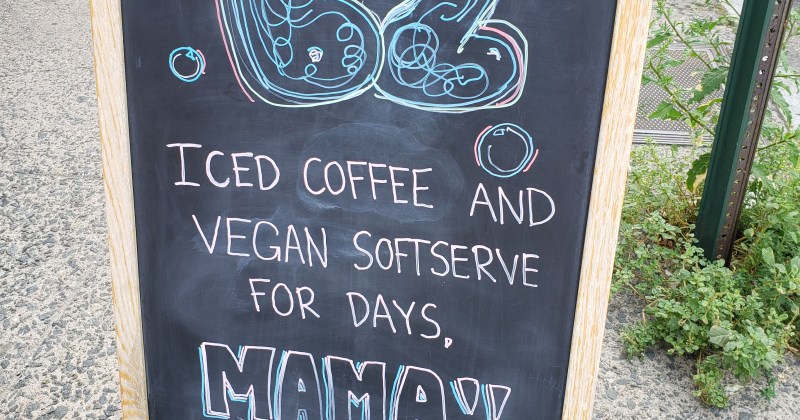 ICED COFFEE AND
VEGAN SOFTSERVE
FOR DAYS,
MAMA!!